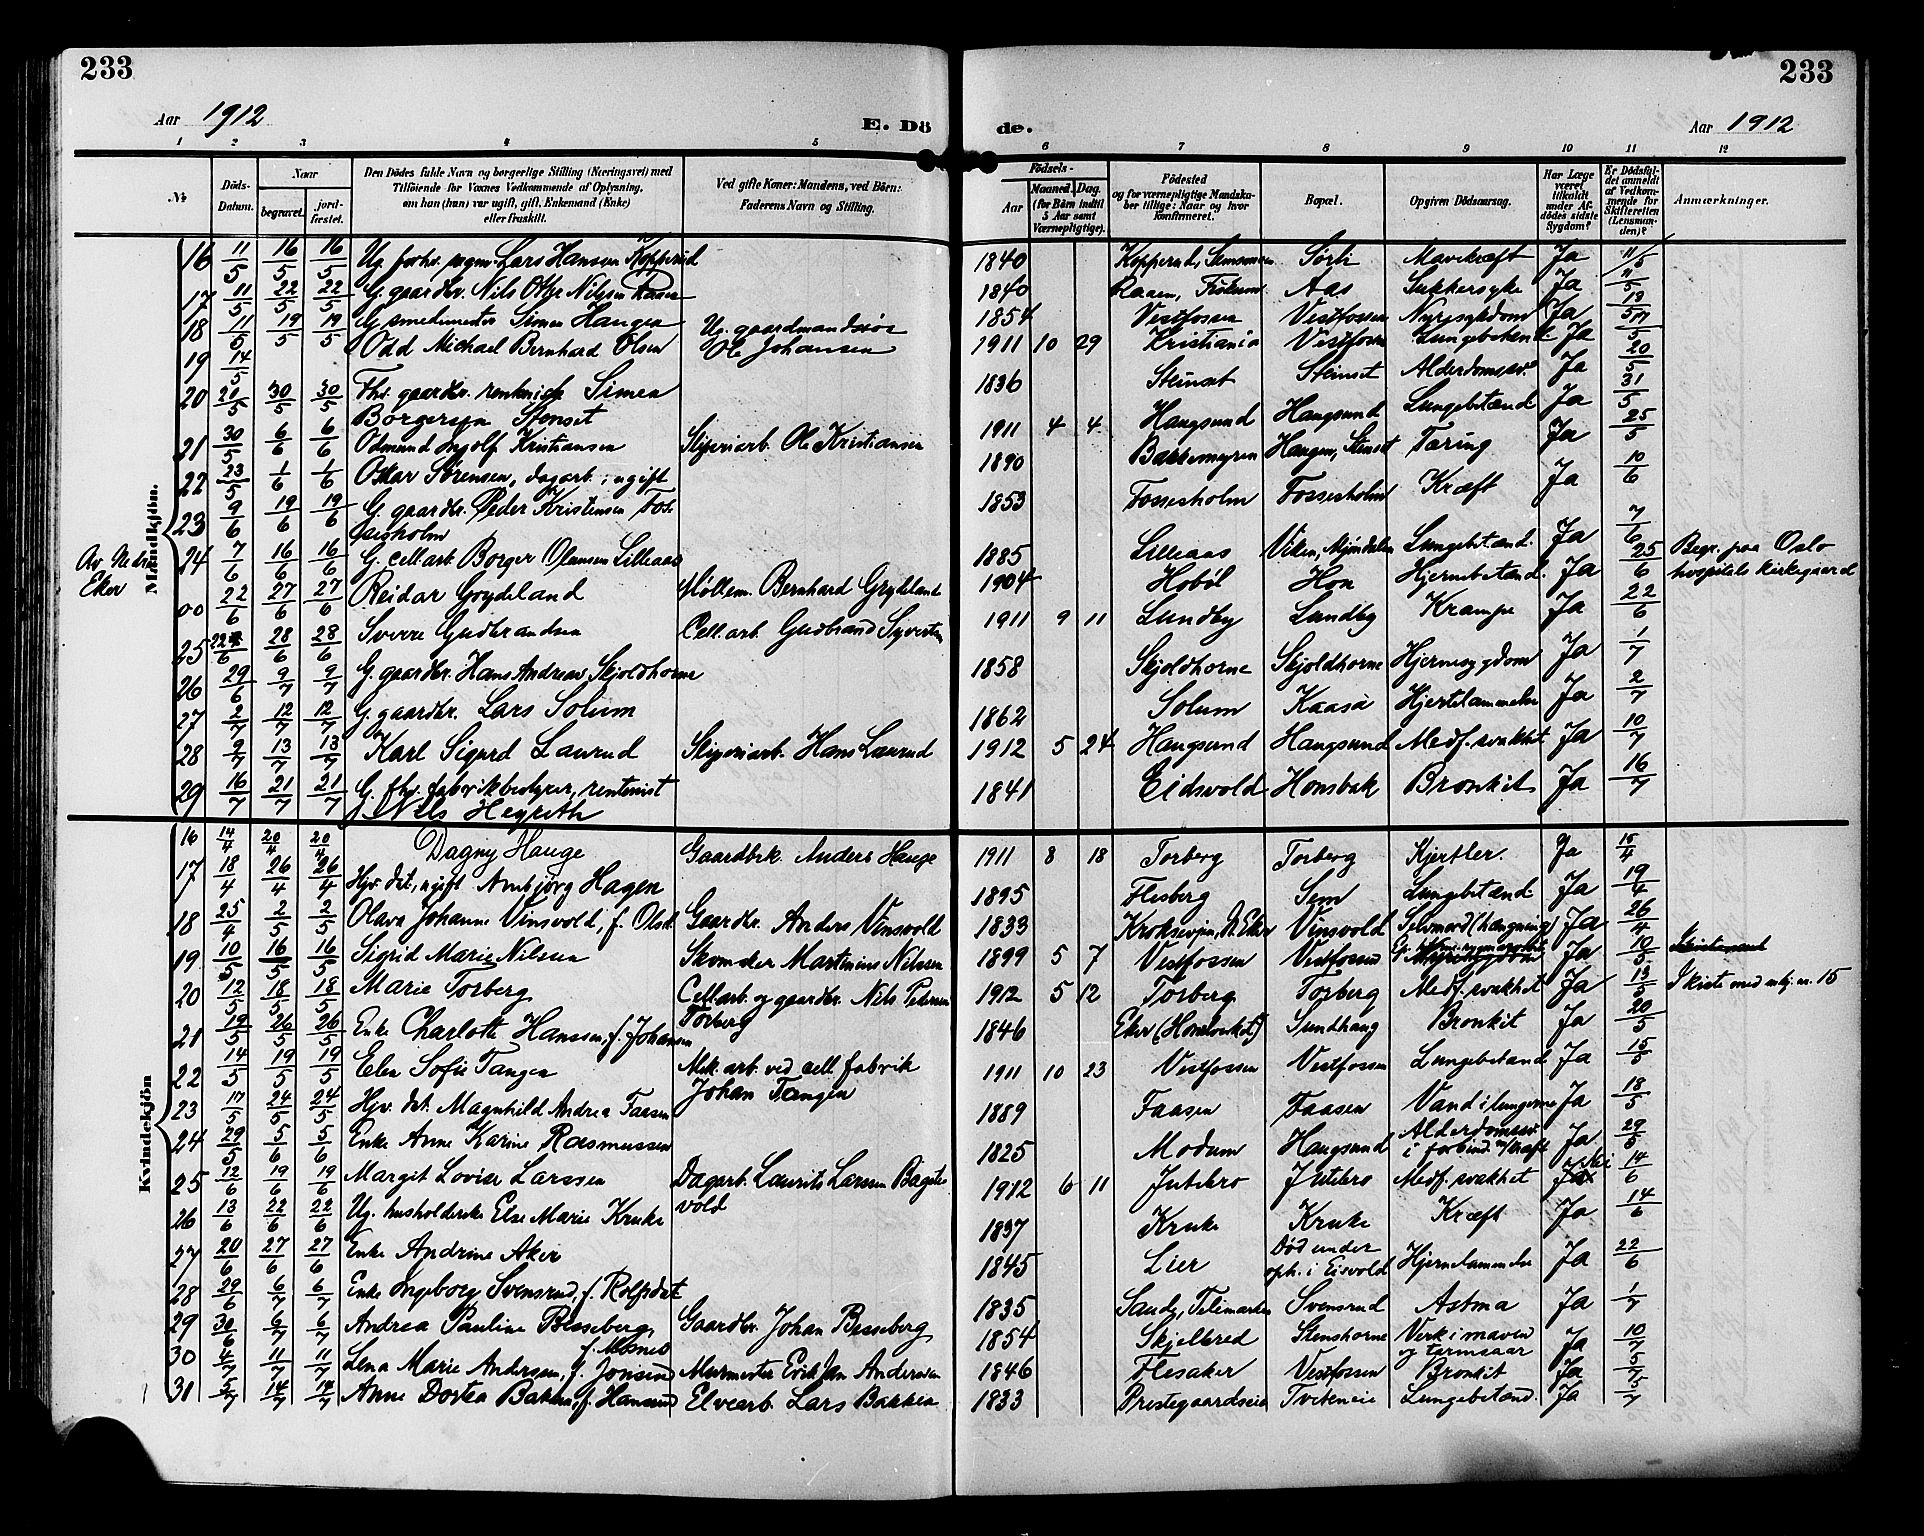 233 233
Aar 1912 E. Dö de. Aar 1912
1 2 3 4 5 6 7 8 9 10 11 12
No. Döds-Datum. Naar begravet. jord-fæstet. Den Dödes fulde Navn og borgerlige Stilling (Næringsvei) med Tilföiende for Voxnes Vedkommende af Oplysning, om han (hun) var ugift, gift, Enkemand (Enke) eller fraskilt. Ved gifte Koner: Mandens, ved Börn: Faderens Navn og Stilling. Födsels- Aar Maaned. Dag. (for Börn indtil 5 Aar samt Værnepligtige). Födested og for værnepligtige Mandskaber tillige: Naar og hvor konfirmeret. Bopæl. Opgiven Dödsaarsag. Har Læge været tilkaldt under Afdödes sidste Sygdom? Er Dödsfaldet anmeldt af Vedkommende for Skifteretten (Lensmanden)? Anmærkninger.
Mandkjön.
16 11/5 16/5 16/5 Ug. forhv. Lars Hansen Kopperud 1840 Kopperud, Simonsen Sörli Mavekræft Ja 11/5
17 11/5 22/5 22/5 G. gaardbr. Nils Otto Nilssen Raaen 1840 Raaen, Fiskum Aas Sukkersyke Ja 11/5
18 11/5 19/5 19/5 G. smedmester Simen Haugen 1854 Vestfossen Vestfossen Nyresykdom Ja 13/5
19 14/5 Odd Michael Bernhard Olsen Ug. gaardmandssös Ole Johansen 1911 10 29 Kristiania Vestfossen Lungebetend. Ja 17/5
20 20/5 30/5 30/5 Fhv. gaardbr. rentenist Simen Borgersen Stenset 1836 Steinset Steinset Alderdomssv. Ja 20/5
21 30/5 6/6 6/6 Odmund Ingolf Kristiansen Sliperiarb. Ole Kristiansen 1911 4 4 Haugsund Haugsund Lungebetænd. Ja 31/5
22 23/5 1/6 1/6 Oskar Sörensen, dagarb., ugift 1890 Bakkemyren Haugen, Stenset Tæring Ja 25/5
23 9/6 19/6 19/6 G. gaardbr. Peder Kristensen Fossesholm 1853 Fossesholm Fossesholm Kræft Ja 10/6
24 7/6 16/6 16/6 G. cell.arb. Borger Olausen Lilleaas 1885 Lilleaas Viken, Mjøndalen Lungebetænd. Ja 7/6
Av Nedre Eker 00 22/6 27/6 27/6 Reidar Grydeland Møllem. Bernhard Grydeland 1904 Hobøl Hon Hjernebetænd. Ja 25/6 Begr. paa Oslo hospitals kirkegaard
25 22/6 28/6 28/6 Sverre Gudbrandsen Cell.arb. Gudbrand Syvertsen 1911 9 11 Lundby Lundby Krampe Ja 22/6
26 29/6 9/7 9/7 G. gaardbr. Hans Andreas Skjoldhorne 1858 Skjoldhorne Skjoldhorne Hjernesygdom Ja 1/7
27 2/7 12/7 12/7 G. gaardbr. Lars Solum 1862 Solum Kaasa Hjertelammelse Ja 2/7
28 9/7 13/7 13/7 Karl Sigurd Laurud Sliperiarb. Hans Laurud 1912 5 24 Haugsund Haugsund Medf. svakhet Ja 10/7
29 16/7 21/7 21/7 G. fhv. fabrikbestyrer, rentenist Nils Hegreth 1841 Eidsvold Honsbak Bronkit Ja 16/7
Kvindekjön
16 14/4 20/4 20/4 Dagny Hauge Gaardbrk. Anders Hauge 1911 8 18 Torberg Torberg Kjertler. Ja 15/4
17 18/4 26/4 26/4 Hjv. dat., ugift Arnbjörg Hagen 1895 Flesberg Sem Lungebetænd. Ja 19/4
18 25/4 2/5 2/5 Olava Johanne Vinsvold, f. Olsd. Gaardbr. Anders Vinsvold 1833 Kroksevjen, N. Eker Vinsvold Selvmord (hængning) Ja 26/4
19 10/5 16/5 16/5 Sigrid Marie Nilsen Skomaker Martinius Nilssen 1899 5 7 Vestfossen Vestfossen Ja 10/5
20 12/5 18/5 18/5 Marie Torberg Cell.arb. og gaardbr. Nils Petersen Torberg 1912 5 12 Torberg Torberg Medf. svakhet Ja 13/5 I kiste med mkj. nr. 15
21 19/5 26/5 26/5 Enke Charlotte Hansen, f. Johansen 1846 Eker Sundhaug Bronkit Ja 20/5
22 14/5 19/5 19/5 Elen Sofie Tangen Mek. arb. ved cell. fabrik Johan Tangen 1911 10 23 Vestfossen Vestfossen Lungebetænd Ja 15/5
23 17/5 24/5 24/5 Hjv. dat. Magnhild Andrea Faasen 1889 Faasen Faasen Vand i lungerne Ja 18/5
24 29/5 5/6 5/6 Enke Anne Karine Rasmussen 1825 Modum Haugsund Alderdomssv. i forbind. m/ kræft Ja 29/5
25 12/6 19/6 19/6 Margit Lovise Larssen Dagarb. Laurits Larssen Bagstevold 1912 6 11 Jutebro Jutebro Medf. svakhet Nei 14/6
26 13/6 22/6 22/6 Ug. husholderske Else Marie Kruke 1837 Kruke Kruke Kræft Ja 14/6
27 20/6 27/6 27/6 Enke Andrine Aker 1845 Lier Död under oph. i Eisvold Hjernelammelse Ja 22/6
28 29/6 6/7 6/7 Enke Ingeborg Svensrud, f. Rolfsdat. 1835 Sande, Telemarken Svensrud Astma Ja 1/7
29 30/6 6/7 6/7 Andrea Pauline Besseberg, f. Mosnes Gaardbr. Johan Besseberg 1854 Skjelbred Stenshorne Verk i maven og tarmsaar Ja 10/7
30 4/7 11/7 11/7 Lena Marie Andersen, f. Jonsrud Murmester Erik Jan Andersen 1846 Flesaker Vestfossen Bronkit Ja 5/7
31 5/7 14/7 14/7 Anne Dortea Bakken, f. Hansrud Elvearb. Lars Bakken 1833 Prestegaardseie Tveteneie Lungebetænd. Ja 5/7